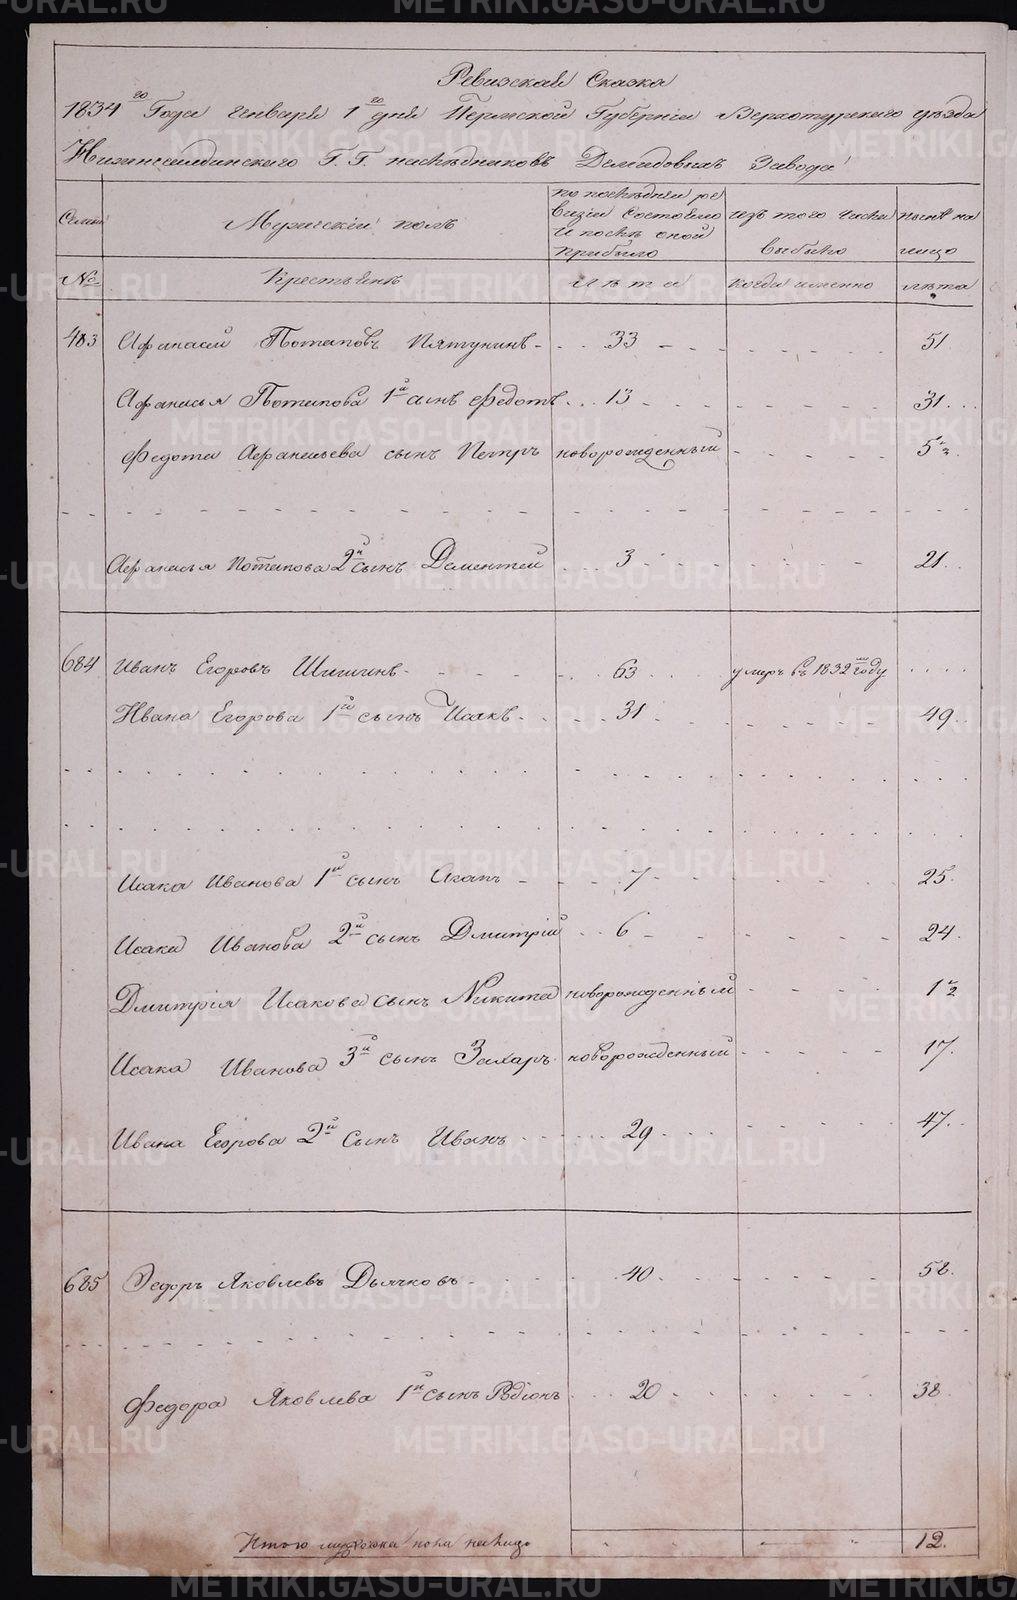 Ревизская Сказка
1834го Года Генваря 1го дня Пермской Губернии Верхотурского уѣзда
Нижнесалдинского Г.Г. наслѣдниковъ Демидовыхъ Завода
Семьи
Мужескiй полъ
по послѣдней ре
визiи состояло
и послѣ оной
прибыло
изъ того числа
выбыло
нынѣ на
лицо
№
Крестьянъ
лѣта
когда именно
лѣта
483 Афанасей Потаповъ Пятунинъ 33 51
Афанасья Потапова 1й сынъ Федотъ 13 31
Федота Афанасьева сынъ Петръ новорожденный 5 ½
Афанасья Потапова 2й сынъ Дементей 3 21
684 Иванъ Егоровъ Шишинъ 63 умеръ въ 1832м году
Ивана Егорова 1й сынъ Исакъ 31 49
Исака Иванова 1й сынъ Агапъ 7 25
Исака Иванова 2й сынъ Дмитрiй 6 24
Дмитрiя Исакова сынъ Никита новорожденный 1 ½
Исака Иванова 3й сынъ Захаръ новорожденный 17
Ивана Егорова 2й сынъ Иванъ 29 47
685 Федоръ Яковлевъ Дьячковъ 40 58
Федора Яковлева 1й сынъ Родiонъ 20 38
Итого мужеска пола налицо 12
METRIKI.GASO-URAL.RU